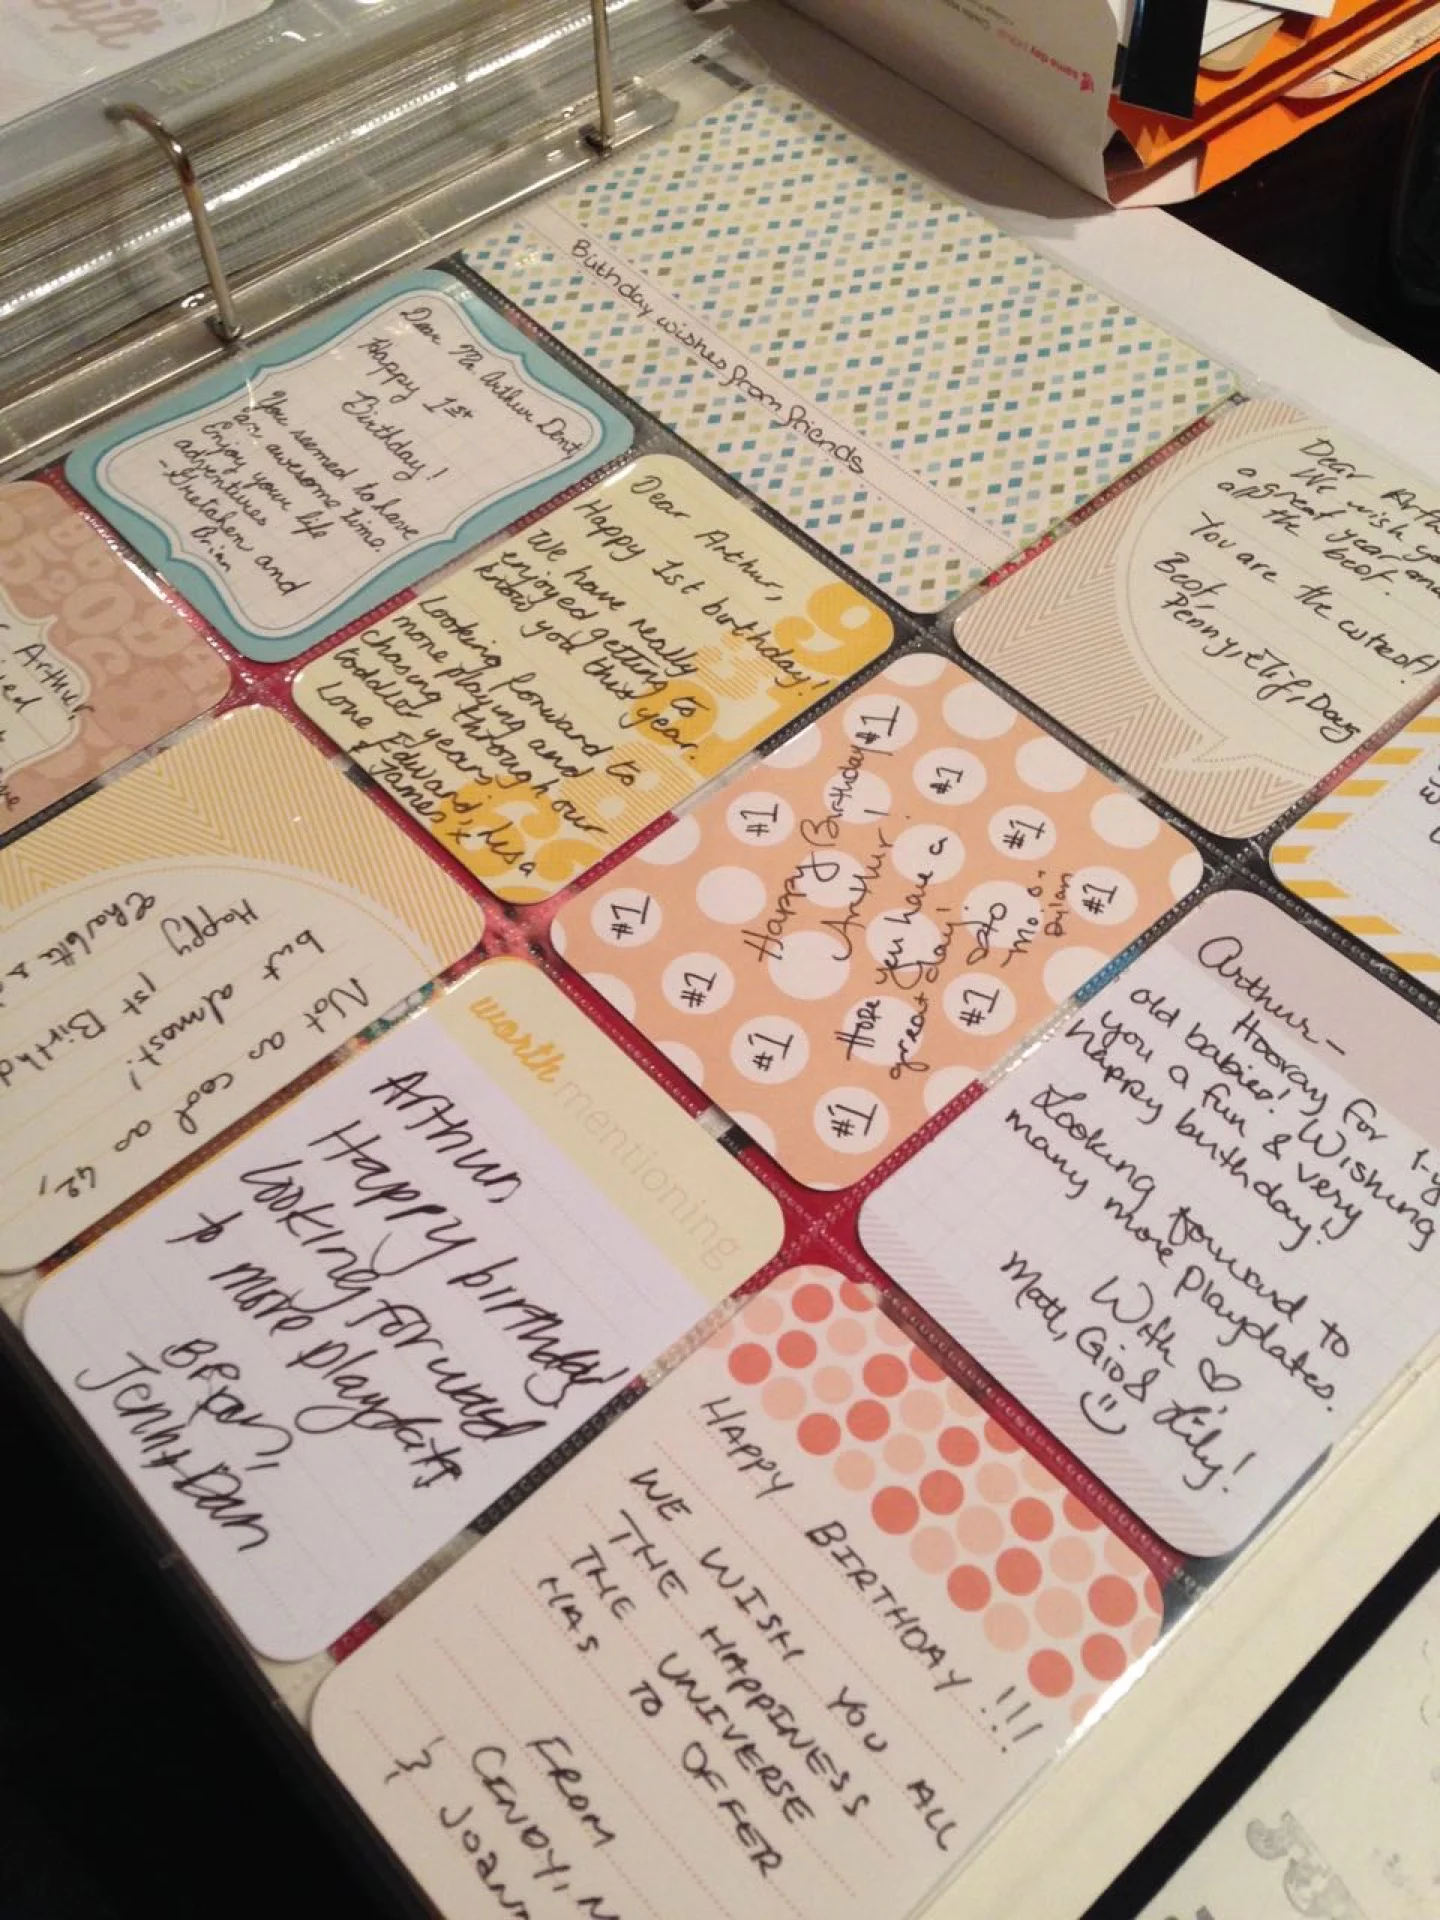 Gift
same day
Birthday wishes from friends
Dear Mr. Arthur Dent
Happy 1st
Birthday!
You seemed to have
an awesome time.
Enjoy your life
adventures
-Gretchen and
Brian
Dear Arthur,
Happy 1st birthday!
We have really
enjoyed getting to
know you this year.
Looking forward to
more playing and
chasing through our
toddler years!
Love Edward, Lisa
& James x
Dear Arthu
We wish yo
a great year and
all the best.
You are the cutest!
Best,
Penny, Elif, Doug
Arthur,
#1
#1
#1
#1
#1
#1
#1
#1
#1
#1
Happy Birthday
Arthur!
Hope you have a
great day!
Oslo
Mo &
Dylan
Not as cool as 42,
but almost!
Happy 1st Birthd
worth mentioning
Arthur,
Happy birthday!
Looking forward
to more playdates
Brian,
Jenn + Dan
Arthur-
Hooray for 1-y
old babies! Wishing
you a fun & very
happy birthday!
Looking forward to
many more playdates.
With ♡
Matt, Gio & Lily!
HAPPY BIRTHDAY!!!
WE WISH YOU ALL
THE HAPPINESS
THE UNIVERSE
HAS TO OFFER
FROM
CENDY,
& Joann